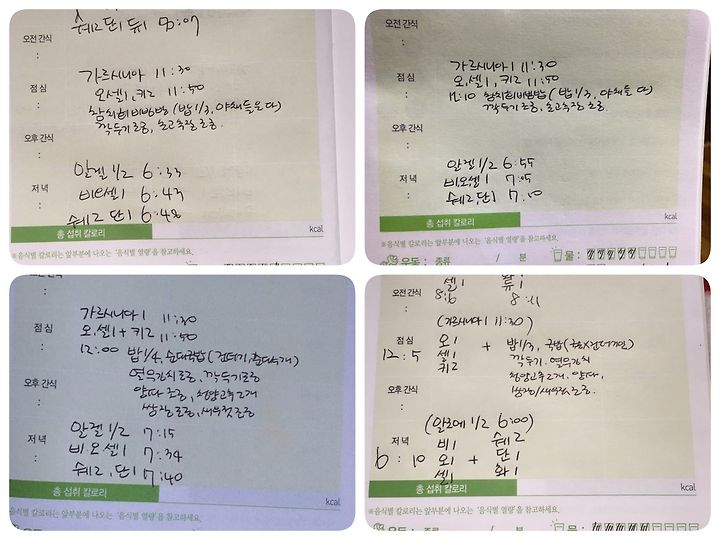 쉐2 단1 듀1 8:07
오전 간식
:
점 심
:
가르시니아 11:30
오.셀1, 키2 11:50
참치회비빔밥 (밥1/3, 야채들은 다)
깍두기조금, 초고추장 조금.
오후 간식
:
저 녁
:
알겔 1/2 6:33
비오셀1 6:43
쉐2 단1 6:48
총 섭취 칼로리
kcal
※음식별 칼로리는 앞부분에 나오는 '음식별 열량'을 참고하세요.
오전 간식
:
점 심
:
가르시니아1 11:30
오.셀1, 키2 11:50
12:10 참치회비빔밥 (밥1/3, 야채들 다)
깍두기조금, 초고추장 조금.
오후 간식
:
저 녁
:
알겔 1/2 6:55
비.오.셀1 7:05
쉐2.단1 7:10
총 섭취 칼로리
kcal
※음식별 칼로리는 앞부분에 나오는 '음식별 열량'을 참고하세요.
운동 : 종류 / 분
물 :
오전 간식
:
점 심
:
가르시니아1 11:30
오.셀1+키2 11:50
12:00 밥1/4, 순대국밥(건더기,순대4개)
열무김치조금, 깍두기조금
양파 조금, 청양고추2개
쌈장조금, 새우젓조금
오후 간식
:
저 녁
:
알겔 1/2 7:15
비.오.셀1 7:34
쉐2, 단1 7:40
총 섭취 칼로리
kcal
※음식별 칼로리는 앞부분에 나오는 '음식별 열량'을 참고하세요.
오전 간식
:
셀1 듀1
8:6 8:11
(가르시니아1 11:30)
점 심
12:5
오1
셀1
키2
+ 밥1/3, 국밥
깍두기. 열무김치
청양고추2개, 양파,
쌈장/새우젓조금.
오후 간식
:
저 녁
(알로에 1/2 6:00)
6:10
비1
오1
셀1
+
쉐2
단1
화1
총 섭취 칼로리
kcal
※음식별 칼로리는 앞부분에 나오는 '음식별 열량'을 참고하세요.
운동 : 종류 / 분
물 :